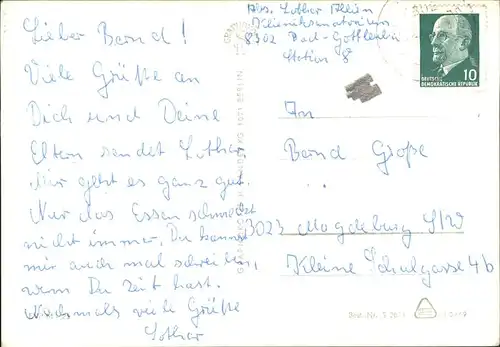 Lieber Bernd!
Viele Grüße an
Dich und Deine
Eltern sendet Lothar
Mir geht es ganz gut.
Nur das Essen schmeckt
nicht immer. Du kannst
mir auch mal schreiben,
wenn Du Zeit hast.
Nochmals viele Grüße
Lothar
Abs. Lothar
Kliniksanatorium
8302 Bad-Gottleuba
Station 8
DEUTSCHE
DEMOKRATISCHE REPUBLIK
10
An
Bernd Große
3023 Magdeburg
Kleine Schulgasse 4b
Best.-Nr.